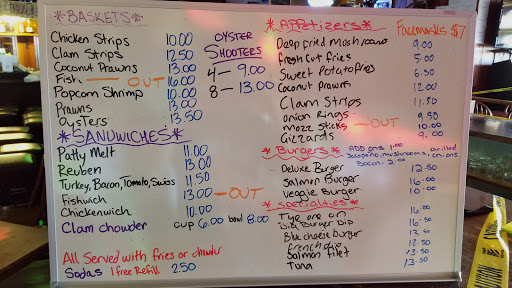 *BASKETS*
Chicken Strips 10.00
Clam Strips 12.50
Coconut Prawns 13.00
Fish — OUT 16.00
Popcorn Shrimp 10.00
Prawns 13.00
Oysters 13.50
OYSTER
SHOOTERS
4 — 9.00
8 — 13.00
*SANDWICHES*
Patty Melt 11.00
Reuben 13.00
Turkey, Bacon, Tomato, Swiss 11.50
Fishwich 13.00 — OUT
Chickenwich 10.00
Clam chowder cup 6.00 bowl 8.00
All Served with fries or chowder
Sodas 1 free Refill 2.50
*APPetizers*
Facemasks $7
Deep fried mushrooms 9.00
Fresh cut fries 5.00
Sweet Potato fries 6.50
Coconut Prawns 12.00
Clam Strips 11.50
Onion Rings 9.50
Mozz Sticks — OUT 10.00
Gizzards 9.00
*Burgers*
ADD ons 1.00
Jalapeno, mushrooms, grilled onions
Bacon 2.00
Deluxe Burger 12.50
Salmon Burger 16.00
Veggie Burger 10.00
*Specialties*
Tye one on 16.00
Dip 16.50
Blue cheese Burger 13.50
French dip 12.50
Salmon filet 13.50
Tuna 13.50